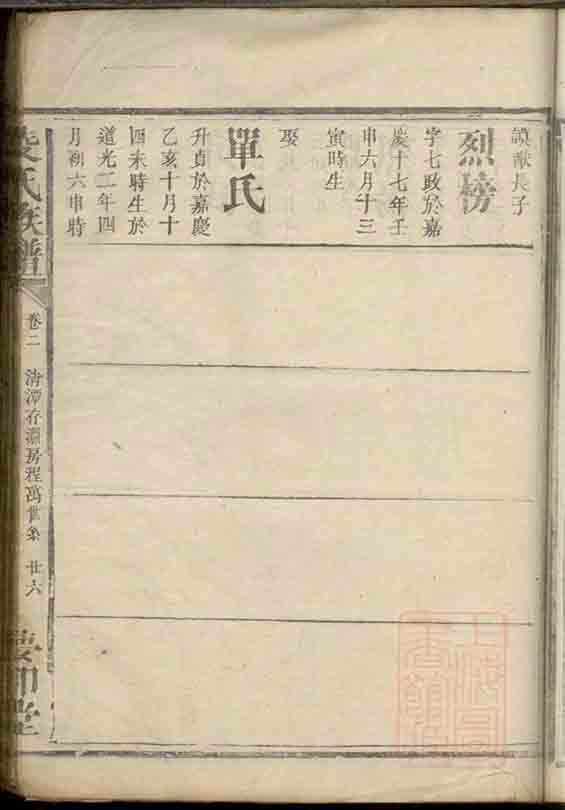 謨猷長子
烈榜
字七政於嘉
慶十七年壬
申六月十三
寅時生
娶
單氏
升貞於嘉慶
乙亥十月十
四未時生於
道光二年四
月初六申時
氏族譜
卷二
清潭存淵房程萬世系
廿六
堂
上海圖
書館